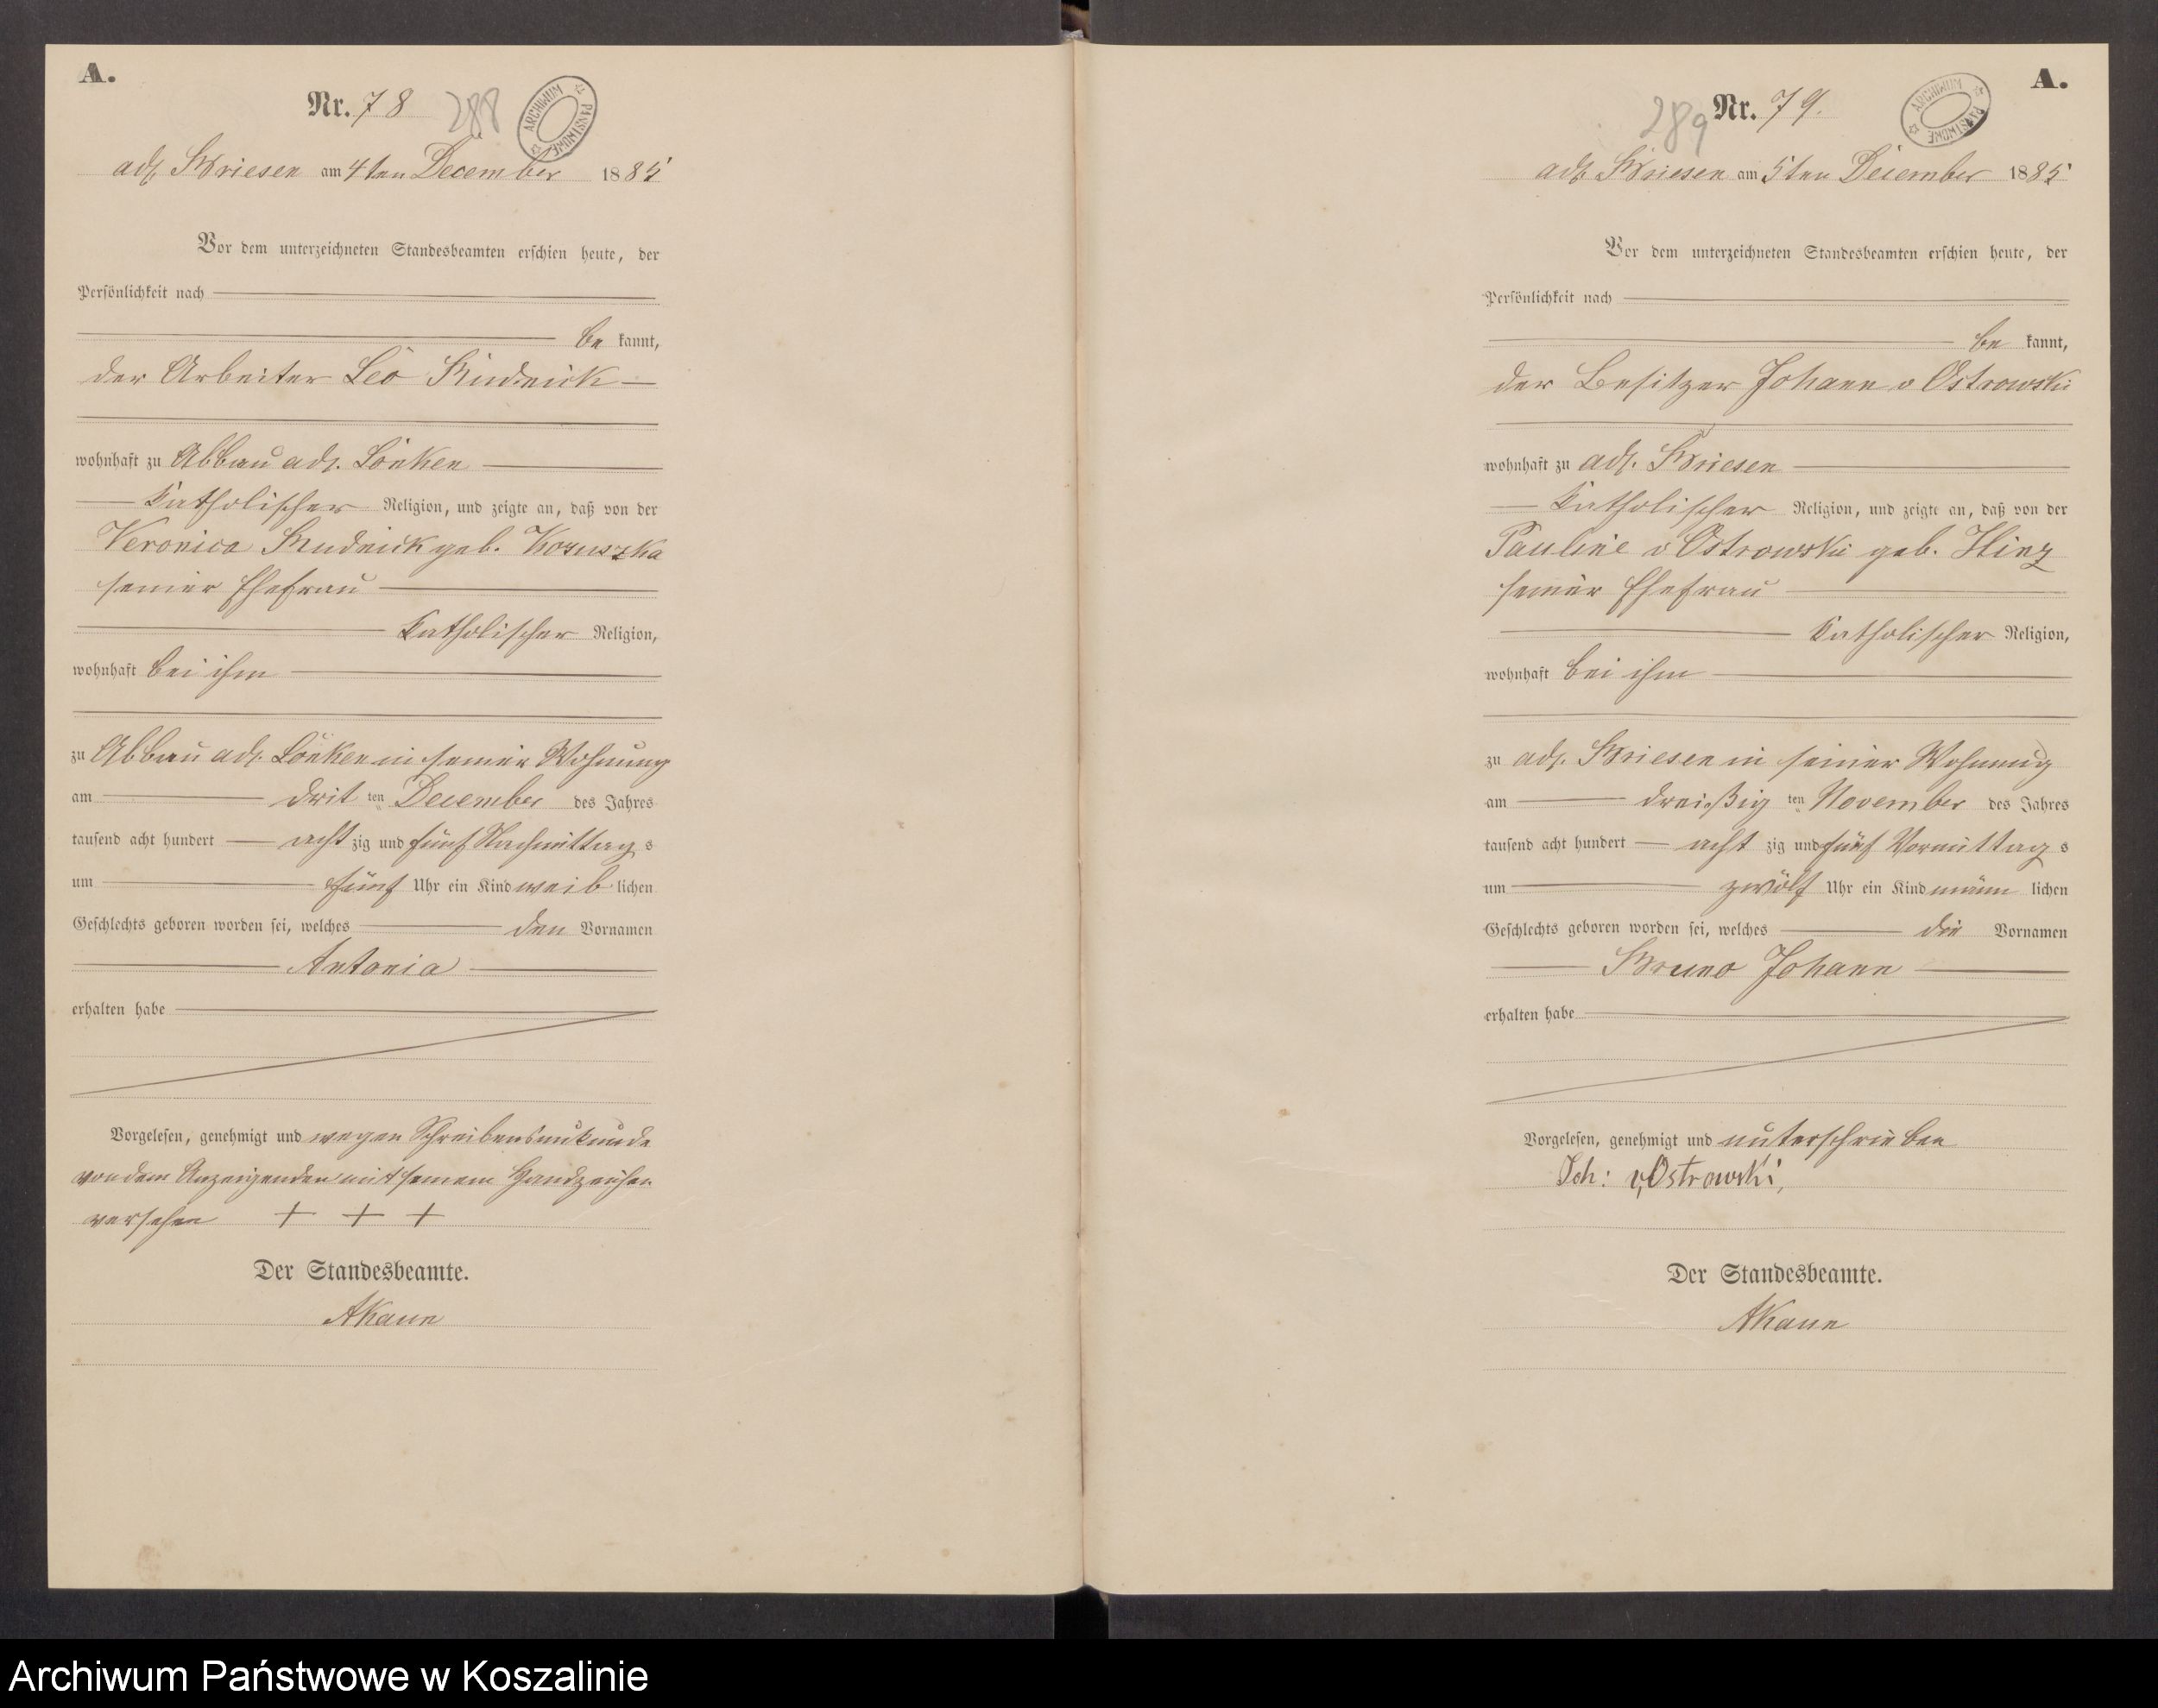 A.
Nr. 78
288
ARCHIWUM PAŃSTWOWE
adl. Briesen am 4ten December 1885
Vor dem unterzeichneten Standesbeamten erschien heute, der
Persönlichkeit nach
be kannt,
der Arbeiter Leo Rudnick
wohnhaft zu Abbau adl. Lonken
Katholischer Religion, und zeigte an, daß von der
Veronica Rudnick geb. Kozuszka
seiner Ehefrau
Katholischer Religion,
wohnhaft bei ihm
zu Abbau adl. Lonken in seiner Wohnung
am drit ten December des Jahres
tausend acht hundert acht zig und fünf Nachmittag s
um fünf Uhr ein Kind weib lichen
Geschlechts geboren worden sei, welches den Vornamen
Antonia
erhalten habe
Vorgelesen, genehmigt und wegen Schreibensunkunde
von dem Anzeigenden mit seinem Handzeichen
versehen + + +
Der Standesbeamte.
AKaun
A.
Nr. 79.
289
ARCHIWUM PAŃSTWOWE
adl. Briesen am 5ten December 1885
Vor dem unterzeichneten Standesbeamten erschien heute, der
Persönlichkeit nach
be kannt,
der Besitzer Johann v Ostrowski
wohnhaft zu adl. Briesen
Katholischer Religion, und zeigte an, daß von der
Pauline v Ostrowski geb. Hinz
seiner Ehefrau
Katholischer Religion,
wohnhaft bei ihm
zu adl. Briesen in seiner Wohnung
am dreißig ten November des Jahres
tausend acht hundert acht zig und fünf Vormittag s
um zwölf Uhr ein Kind männ lichen
Geschlechts geboren worden sei, welches die Vornamen
Bruno Johann
erhalten habe
Vorgelesen, genehmigt und unterschrieben
Joh: v. Ostrowski,
Der Standesbeamte.
AKaun
Archiwum Państwowe w Koszalinie